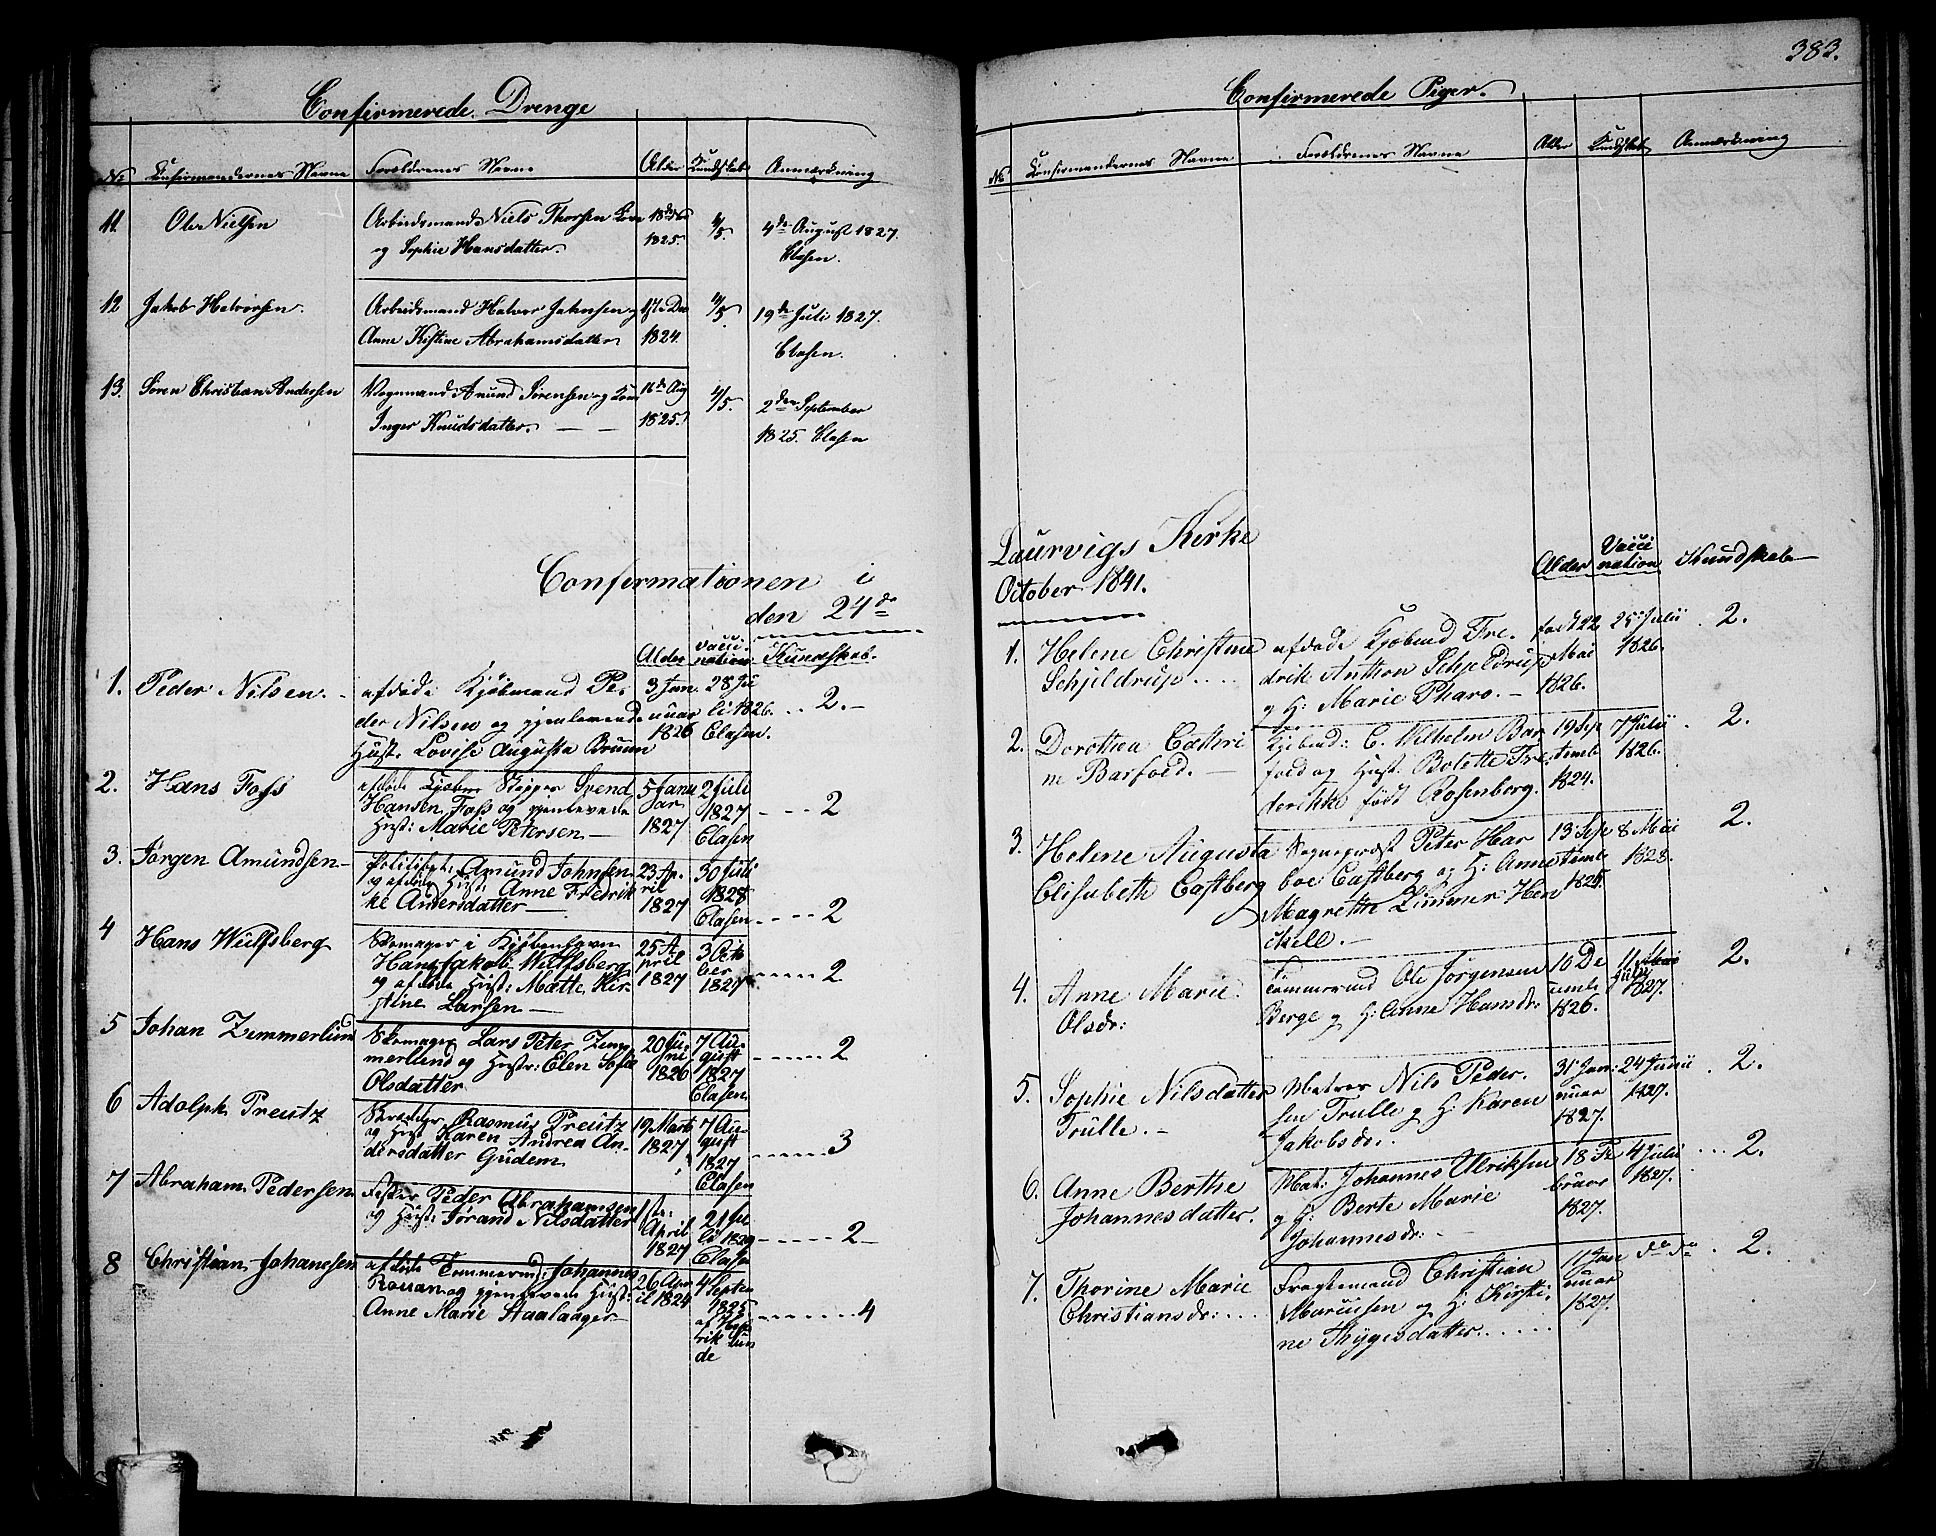 Confirmerede Drenge
No Konfirmandernes Navne Forældrenes Navne Alder Kundskab Anmærkning
11. Ole Nielsen
Arbeidsmand Niels Thorsen
og Sophie Hansdatter.
1825.
4/5.
4de August 1827.
Clasen.
12 Jakob Halvorsen.
Arbeidsmand Halvor Jakobsen og
Anne Kistine Abrahamsdatter
1ste Dec
1824.
4/5.
19de Juli 1827.
Clasen.
13. Søren Christian Andersen
Vognmand Amund Sørensen og Kone
Inger Knudsdatter. — —
16de Aug
1825.
4/5.
2den September
1825. Clasen
Confirmationen i
den 24de
Alder Vacci-
nation Kundskab.
1. Peder Nilsen. -
afdøde Kjøbmand Pe-
der Nilsen og gjenlevende
Hust. Lovise Augusta Bruun
3 Jan
nuar
1826
28 Ju
li 1826.
Clasen.
2.
2. Hans Foss
afdøde Skipper Svend
Hansen Foss og gjenlevende
Hust: Marie Petersen —
5 Janu
ar
1827
2 Juli
1827
Clasen
2
3. Jørgen Amundsen
Politibet: Amund Johnsen
og afdøde Hust: Anne Fredrik
ke Andersdatter —
23 Ap-
ril
1827
30 Juli
1828
Clasen
2
4 Hans Wulfsberg
Skomager i Kjøbenhavn
Hans Jakob Wulfsberg
og afdøde Hust: Mætte Kir-
stine Larsen —
25 A
pril
1827
3 Octo
ber
1827
2
5 Johan Zimmerlund
Skomager Lars Peter Zim
merlund og Hustr: Elen Sofie
Olsdatter
20 Ju-
ni
1826
7 Au-
gust
1827
Clasen
2
6 Adolph Preutz
Skræder Rasmus Preutz
og Hust Karen Andrea An-
dersdatter Gudem
19 Marts
1827
7 Au-
gust
1827
Clasen
3
7 Abraham Pedersen
Fisker Peder Abrahamsen
og Hust: Jørand Nilsdatter
1ste
April
1827
21 Ju
li 1829
Clasen
2
8 Christian Johansen
afdøde Tømmermd: Johannes
Rouan og gjenlevende Hust:
Anne Marie Staalaager
26 Apr
il 1824
4 Septe
1825
af Hen
rik Lun
de
4
383.
Confirmerede Piger.
No Konfirmandernes Navne Forældrenes Navne Alder Kundskab Anmærkning
Laurvigs Kirke
October 1841.
Alder Vacci
nation Kundskab
1. Helene Christine
Schjeldrup ....
afdøde Kjøbmd Fre-
drik Anthon Schjeldrup
og H: Marie Pharo. -
født 22
Mai
1826.
25 Julii
1826.
2.
2. Dorothea Cathri
ne Barfoed. -
Kjøbmd: C. Wilhelm Bar
foed og Hust: Bolette Fre
derikke født Rosenberg.
19 Sep
temb
1824.
7 Julii
1826.
2.
3. Helene Augusta
Elisabeth Castberg
Sognepræst Peter Har
boe Castberg og H: Anne
Magrethe Zimmer Hen
ckell. -
13 Sep
temb
1825.
8 Mai
1828.
2.
4. Anne Marie
Olsdr:
Tømmermd Ole Jørgensen
Berge og H: Anne Hansdr:
10 De
cemb
1826.
11 Mai
July
1827.
2.
5. Sophie Nilsdatter
Trulle. -
Matros Nils Peder-
sen Trulle og H: Karen
Jakobsdr:.
31 Jan:
nuar
1827.
24 Junii
1827.
2.
6. Anne Berthe
Johannesdatter.
Mat: Johannes Ulriksen
og H: Berte Marie
Johannesdr: -
18 Fe
bruar
1827.
4 Julii
1827.
2.
7. Thorine Marie
Christiansdr: ....
Fragtemand Christian
Marcusen og H: Kirsti-
ne Thygesdatter.....
11 Jan
nuar
1827.
do do
2.